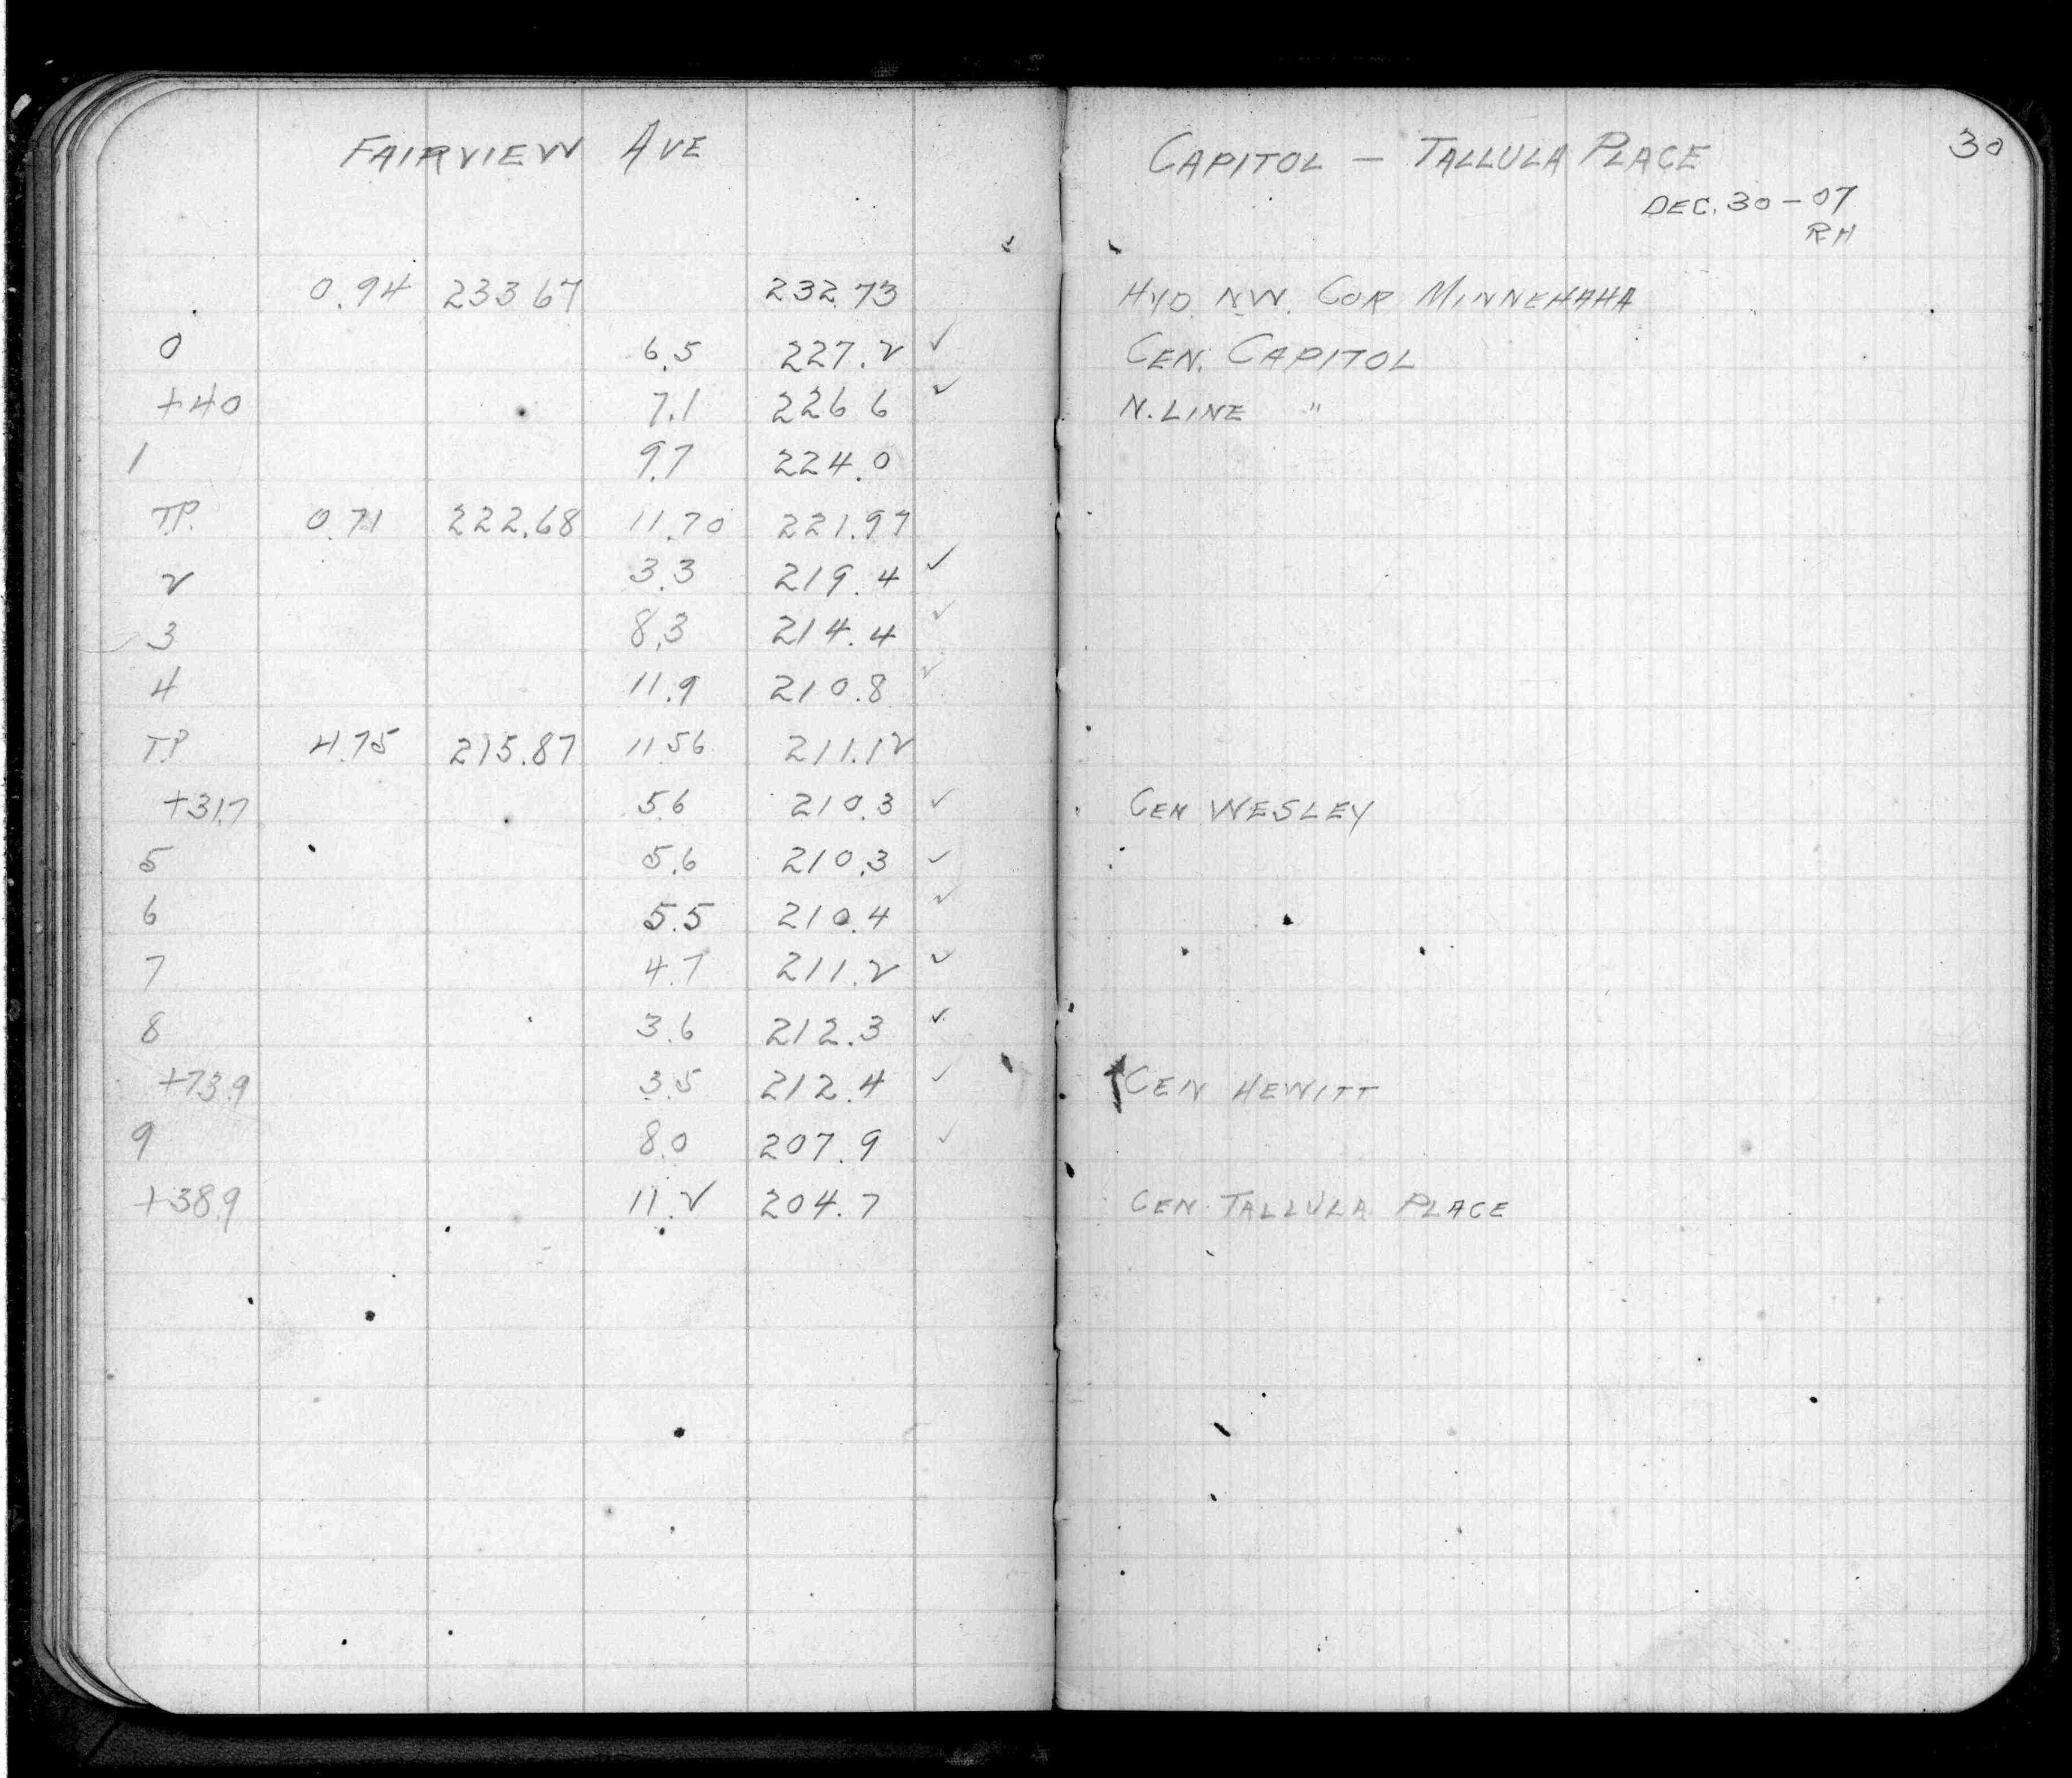 FAIRVIEW AVE CAPITOL — TALLULA PLACE 30
DEC. 30 – 07
RH
0.94 233 67 232.73 HYD. NW. COR MINNEHAHA
0 6.5 227.2 ✓ CEN. CAPITOL
+40 7.1 226 6 ✓ N. LINE "
1 9.7 224.0
T.P. 0.71 222.68 11.70 221.97
2 3.3 219.4 ✓
3 8.3 214.4 ✓
4 11.9 210.8 ✓
T.P 4.75 215.87 11 56 211.12
+31.7 5.6 210.3 ✓ CEN WESLEY
5 5.6 210.3 ✓
6 5.5 210.4 ✓
7 4.7 211.2 ✓
8 3.6 212.3 ✓
+73.9 3.5 212.4 ✓ CEN HEWITT
9 8.0 207.9 ✓
+38.9 11.2 204.7 CEN TALLULA PLACE